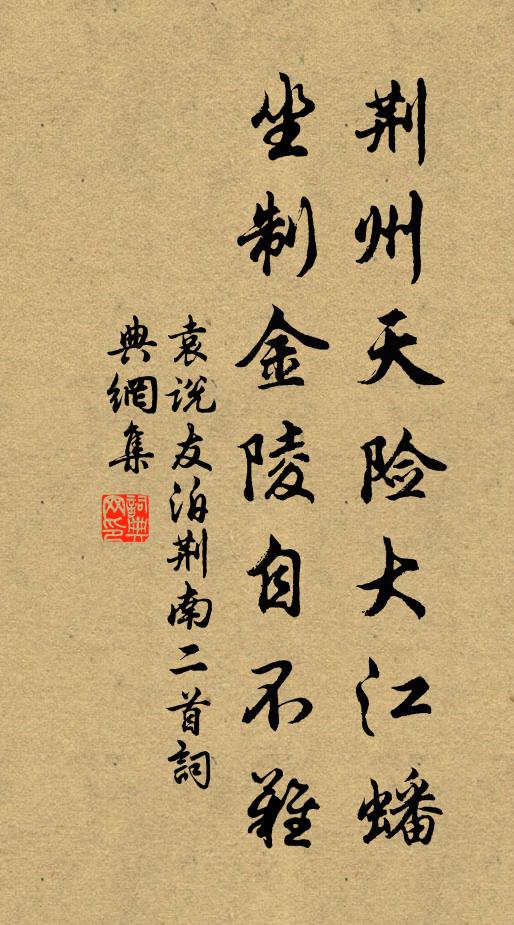 荆州天险大江蟠
坐制金陵自不難
袁说友泊荆南二首詞
典網集
詞典網印